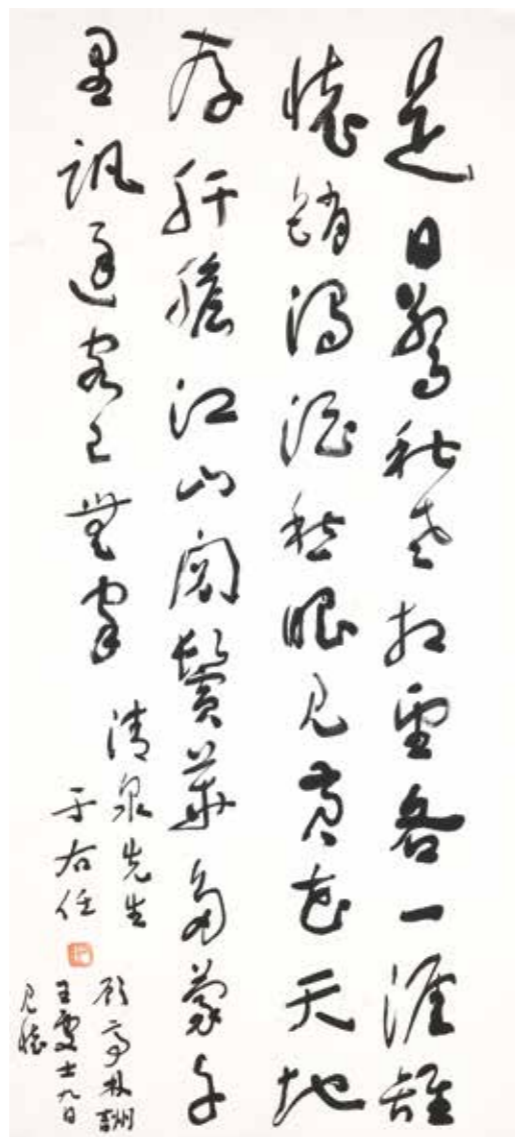 是日驚秋老相望各一涯離
懷銷濁酒愁眼見黃花天地
存肝膽江山閱鬢華多蒙千
里訊逐客已無家
清泉先生
于右任
顧亭林詶
王處士九日
見懷